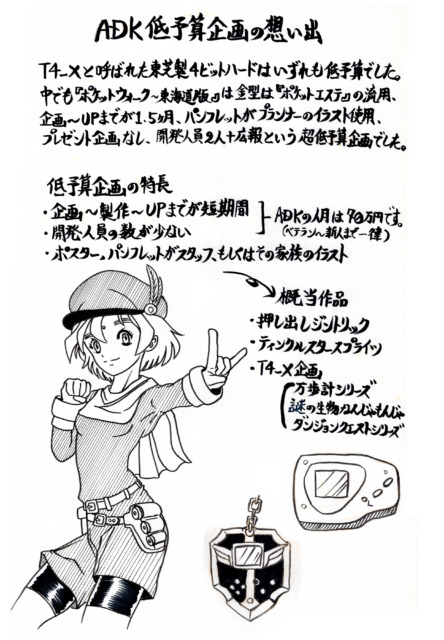 ADK低予算企画の想い出
T4-Xと呼ばれた東芝製4ビットハードはいずれも低予算でした。
中でも『ポケットウォーク~東海道版』は金型は『ポケットエステ』の流用、
企画~UPまでが1.5ヶ月、パンフレットがプランナーのイラスト使用、
プレゼント企画なし、開発人員2人+広報という超低予算企画でした。
低予算企画の特長
・企画~製作~UPまでが短期間
・開発人員の数が少ない
ADKの人月は70万円です。
(ベテラン~新人まで一律)
・ポスター、パンフレットがスタッフ、もしくはその家族のイラスト
概当作品
・押し出しジントリック
・ティンクルスタースプライツ
・T4-X企画
万歩計シリーズ
謎の生物なんじゃもんじゃ
ダンジョンクエストシリーズ